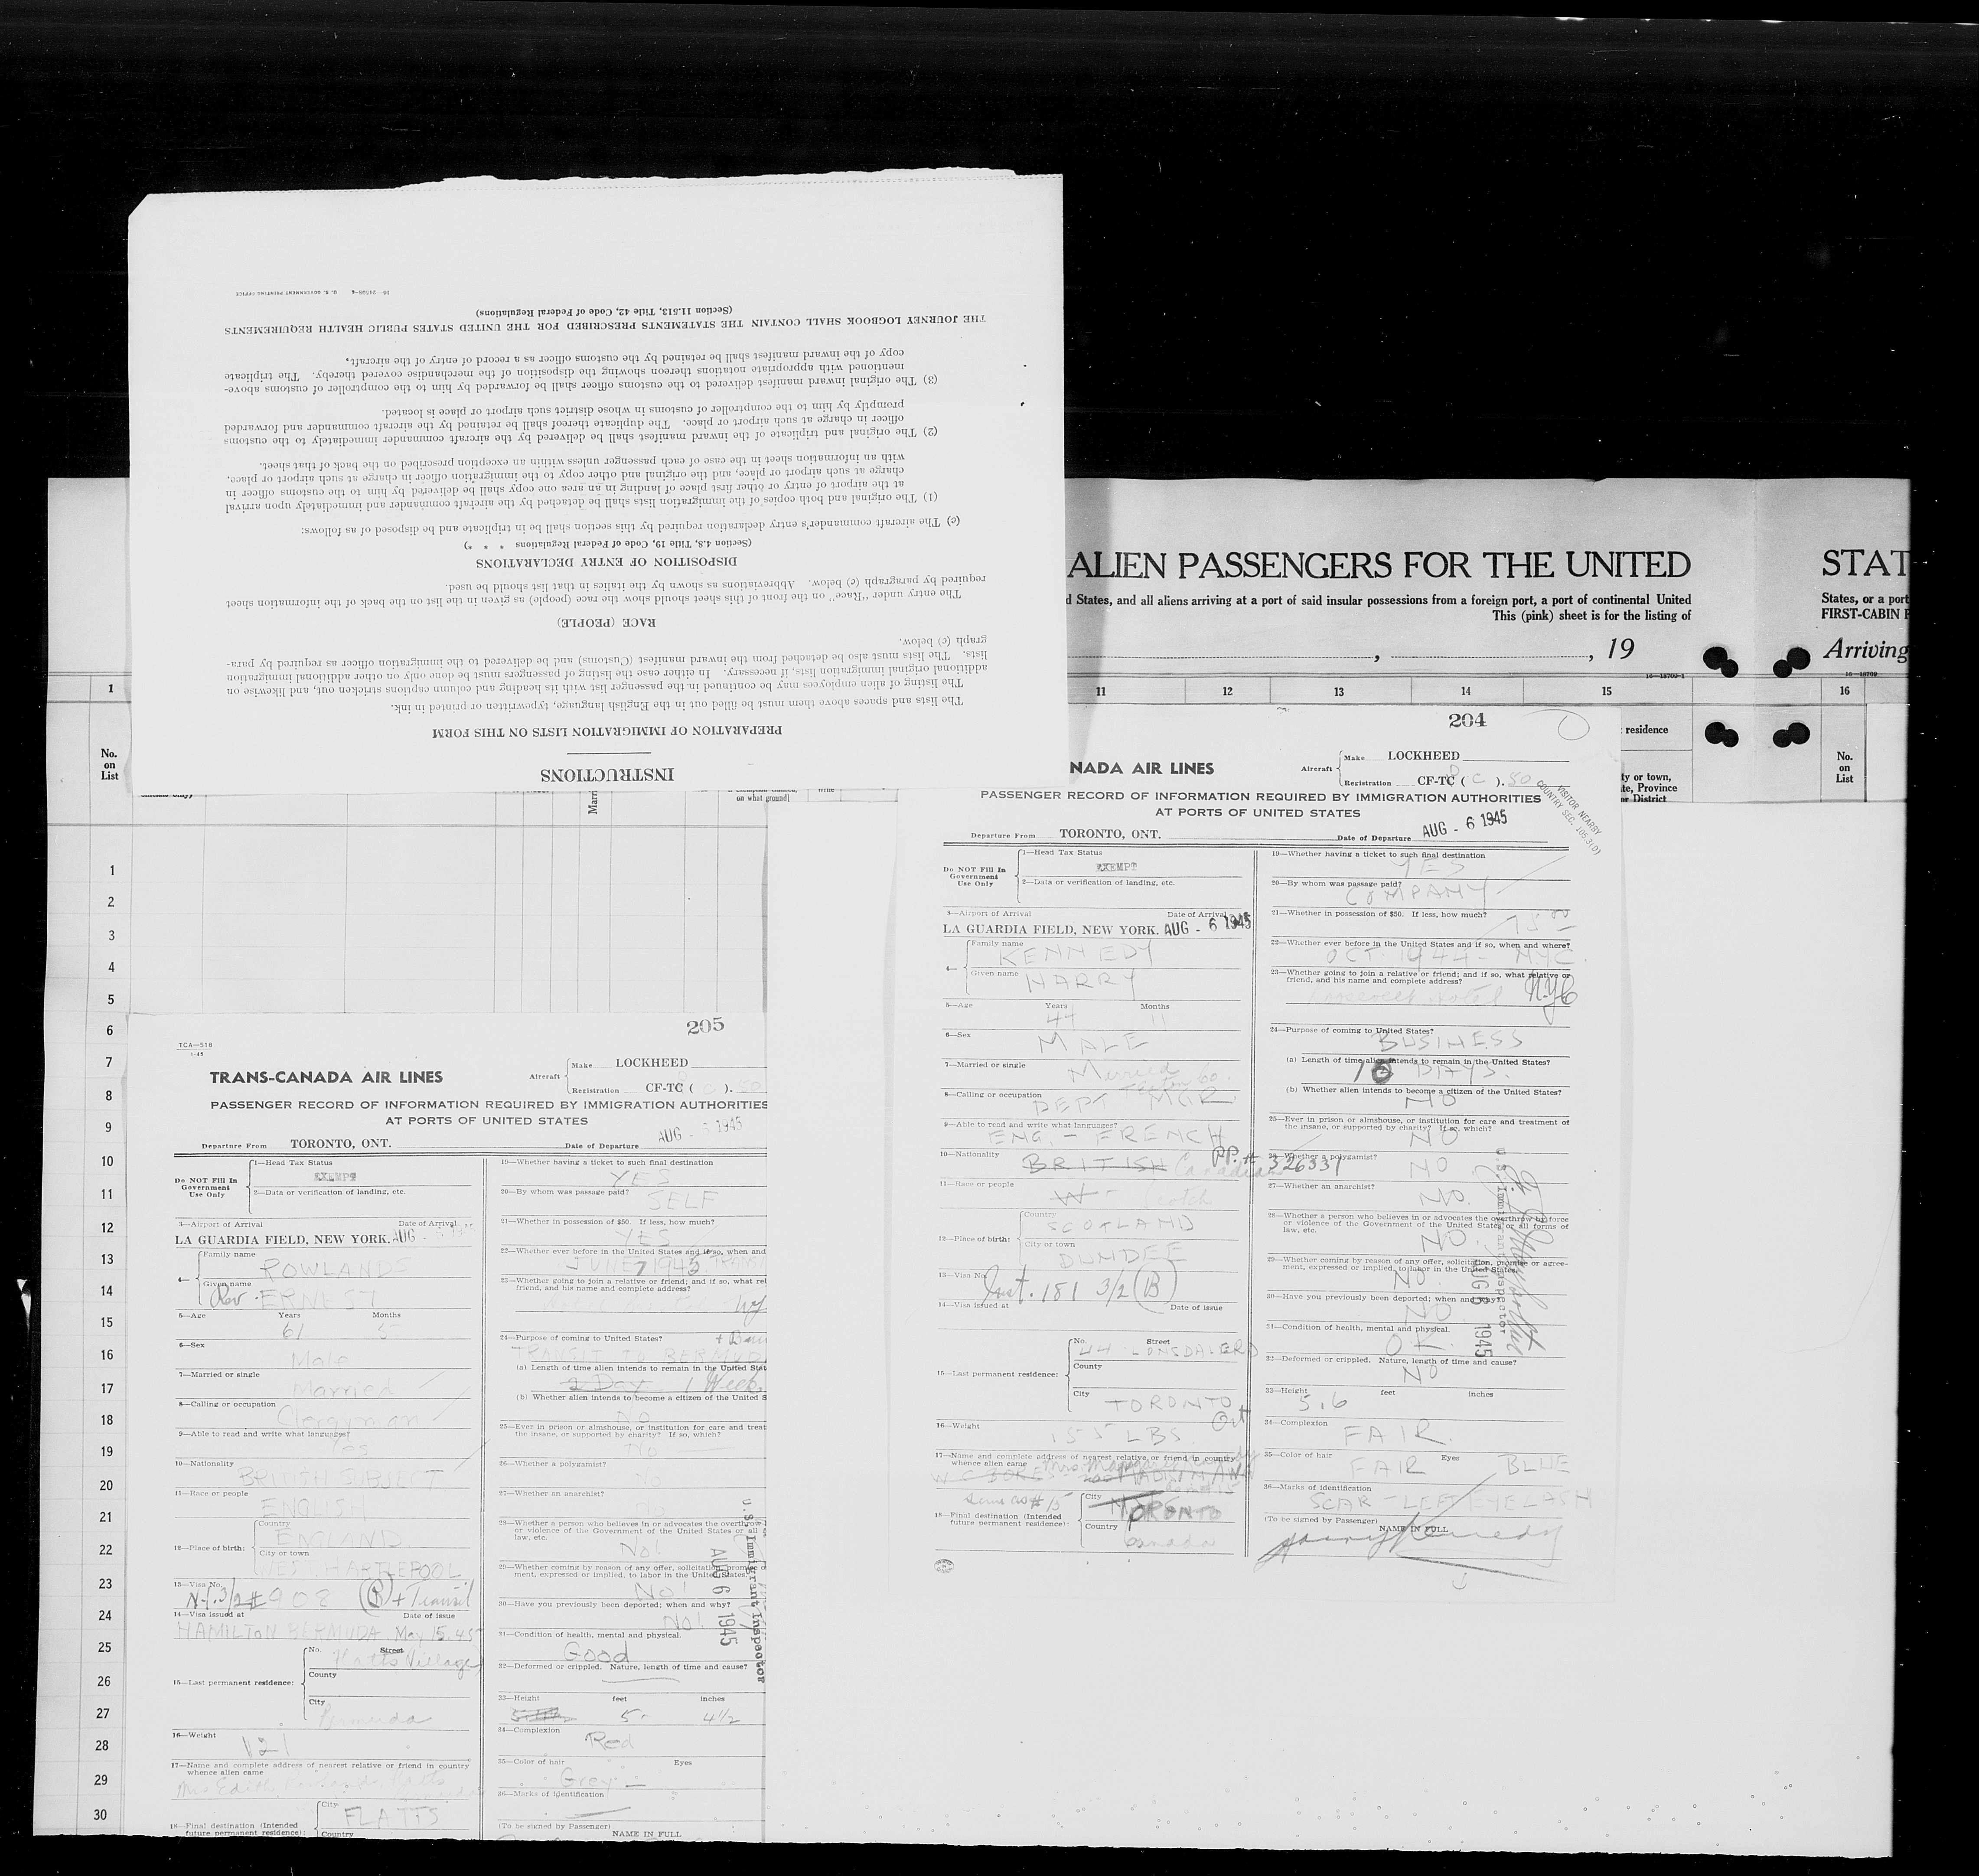 INSTRUCTIONS
PREPARATION OF IMMIGRATION LISTS ON THIS FORM
The lists and spaces above them must be filled out in the English language, typewritten or printed in ink.
The listing of alien employees may be continued in the passenger list with its heading and column captions stricken out, and likewise on
additional original immigration lists, if necessary. In either case the listing of passengers must be done only on other additional immigration
lists. The lists must also be detached from the inward manifest (Customs) and be delivered to the immigration officer as required by para-
graph (c) below.
RACE (PEOPLE)
The entry under "Race" on the front of this sheet should show the race (people) as given in the list on the back of the information sheet
required by paragraph (c) below. Abbreviations as shown by the italics in that list should be used.
DISPOSITION OF ENTRY DECLARATIONS
(Section 4.8, Title 19, Code of Federal Regulations * * *)
(c) The aircraft commander's entry declaration required by this section shall be in triplicate and be disposed of as follows:
(1) The original and both copies of the immigration lists shall be detached by the aircraft commander and immediately upon arrival
at the airport of entry or other first place of landing in an area one copy shall be delivered by him to the customs officer in
charge at such airport or place, and the original and other copy to the immigration officer in charge at such airport or place,
with an information sheet in the case of each passenger unless within an exception prescribed on the back of that sheet.
(2) The original and triplicate of the inward manifest shall be delivered by the aircraft commander immediately to the customs
officer in charge at such airport or place. The duplicate thereof shall be retained by the aircraft commander and forwarded
promptly by him to the comptroller of customs in whose district such airport or place is located.
(3) The original inward manifest delivered to the customs officer shall be forwarded by him to the comptroller of customs above-
mentioned with appropriate notations thereon showing the disposition of the merchandise covered thereby. The triplicate
copy of the inward manifest shall be retained by the customs officer as a record of entry of the aircraft.
THE JOURNEY LOGBOOK SHALL CONTAIN THE STATEMENTS PRESCRIBED FOR THE UNITED STATES PUBLIC HEALTH REQUIREMENTS
(Section 11.513, Title 42, Code of Federal Regulations)
U. S. GOVERNMENT PRINTING OFFICE
ALIEN PASSENGERS FOR THE UNITED
STAT
d States, and all aliens arriving at a port of said insular possessions from a foreign port, a port of continental United
States, or a port
This (pink) sheet is for the listing of
FIRST-CABIN
, , 19
Arriving
1 11 12 13 14 15 16
No.
on
List
residence
ty or town,
te, Province
or District
No.
on
List
on what ground)
1
2
3
4
5
6
7
8
9
10
11
12
13
14
15
16
17
18
19
20
21
22
23
24
25
26
27
28
29
30
204
NADA AIR LINES
Aircraft
Make LOCKHEED
Registration CF-TC ( C ). 50
VISITOR NEARBY
COUNTRY SEC.
PASSENGER RECORD OF INFORMATION REQUIRED BY IMMIGRATION AUTHORITIES
AT PORTS OF UNITED STATES
Departure From TORONTO, ONT. Date of Departure AUG - 6 1945
Do NOT Fill In
Government
Use Only
1—Head Tax Status
EXEMPT
2—Data or verification of landing, etc.
3—Airport of Arrival Date of Arrival
LA GUARDIA FIELD, NEW YORK. AUG - 6 1945
4— Family name
KENNEDY
Given name
HARRY
5—Age Years Months
44 11
6—Sex
MALE
7—Married or single
Married
8—Calling or occupation
DEPT MGR
9—Able to read and write what languages?
ENG. - FRENCH
10—Nationality
BRITISH Canadian PP. # 326331
11—Race or people
W - Scotch
12—Place of birth:
Country
SCOTLAND
City or town
DUNDEE
13—Visa No.
181 3/2 (B)
14—Visa issued at Date of issue
15—Last permanent residence:
No. Street
44 LONSDALE RD
County
City
TORONTO Ont
16—Weight
155 LBS.
17—Name and complete address of nearest relative or friend in country
whence alien came
same as # 15
18—Final destination (Intended
future permanent residence):
City
TORONTO
Country
Canada
19—Whether having a ticket to such final destination
YES
20—By whom was passage paid?
COMPANY
21—Whether in possession of $50. If less, how much?
75.00
22—Whether ever before in the United States and if so, when and where?
OCT. 1944 - NYC.
23—Whether going to join a relative or friend; and if so, what relative or
friend, and his name and complete address?
Roosevelt Hotel NYC
24—Purpose of coming to United States?
BUSINESS
(a) Length of time alien intends to remain in the United States?
10 DAYS.
(b) Whether alien intends to become a citizen of the United States?
NO
25—Ever in prison or almshouse, or institution for care and treatment of
the insane, or supported by charity? If so, which?
NO
26—Whether a polygamist?
NO
27—Whether an anarchist?
NO.
28—Whether a person who believes in or advocates the overthrow by force
or violence of the Government of the United States or all forms of
law, etc.
NO
29—Whether coming by reason of any offer, solicitation, promise or agree-
ment, expressed or implied, to labor in the United States.
NO.
30—Have you previously been deported; when and why?
NO
31—Condition of health, mental and physical.
OK.
32—Deformed or crippled. Nature, length of time and cause?
NO
33—Height feet inches
5.6
34—Complexion
FAIR.
35—Color of hair Eyes
FAIR BLUE
36—Marks of identification
SCAR - LEFT EYELASH
(To be signed by Passenger)
NAME IN FULL
Harry Kennedy
U.S. Immigrant Inspector
AUG 6 1945
205
TCA—518
1-45
TRANS-CANADA AIR LINES
Aircraft
Make LOCKHEED
Registration CF-TC ( C ). 50
PASSENGER RECORD OF INFORMATION REQUIRED BY IMMIGRATION AUTHORITIES
AT PORTS OF UNITED STATES
Departure From TORONTO, ONT. Date of Departure AUG - 6 1945
Do NOT Fill In
Government
Use Only
1—Head Tax Status
EXEMPT
2—Data or verification of landing, etc.
3—Airport of Arrival Date of Arrival
LA GUARDIA FIELD, NEW YORK. AUG - 6 1945
4— Family name
ROWLANDS
Given name
Rev. ERNEST
5—Age Years Months
61 5
6—Sex
Male
7—Married or single
Married
8—Calling or occupation
Clergyman
9—Able to read and write what languages?
Yes
10—Nationality
BRITISH SUBJECT
11—Race or people
ENGLISH
12—Place of birth:
Country
ENGLAND.
City or town
WEST HARTLEPOOL
13—Visa No.
N-I. 3/2 # 908 (B) + Transit
14—Visa issued at Date of issue
HAMILTON BERMUDA May 15. 45
15—Last permanent residence:
No. Street
Flatts Village
County
City
Bermuda
16—Weight
121
17—Name and complete address of nearest relative or friend in country
whence alien came
Mrs Edith Rowlands Flatts
18—Final destination (Intended
future permanent residence):
City
FLATTS
Country
19—Whether having a ticket to such final destination
YES
20—By whom was passage paid?
SELF
21—Whether in possession of $50. If less, how much?
YES
22—Whether ever before in the United States and if so, when and
JUNE 7 1943
23—Whether going to join a relative or friend; and if so, what rel
friend, and his name and complete address?
24—Purpose of coming to United States?
TRANSIT TO BERMUDA
(a) Length of time alien intends to remain in the United Stat
2 Day 1 Week
(b) Whether alien intends to become a citizen of the United S
No
25—Ever in prison or almshouse, or institution for care and treat
the insane, or supported by charity? If so, which?
No
26—Whether a polygamist?
No
27—Whether an anarchist?
28—Whether a person who believes in or advocates the overthrow
or violence of the Government of the United States or all
law, etc.
No!
29—Whether coming by reason of any offer, solicitation, promise o
ment, expressed or implied, to labor in the United States.
No!
30—Have you previously been deported; when and why?
No!
31—Condition of health, mental and physical.
Good
32—Deformed or crippled. Nature, length of time and cause?
33—Height feet inches
5 4½
34—Complexion
Red
35—Color of hair Eyes
Grey
36—Marks of identification
(To be signed by Passenger)
NAME IN FULL
U.S. Immigrant Inspector
AUG 6 1945